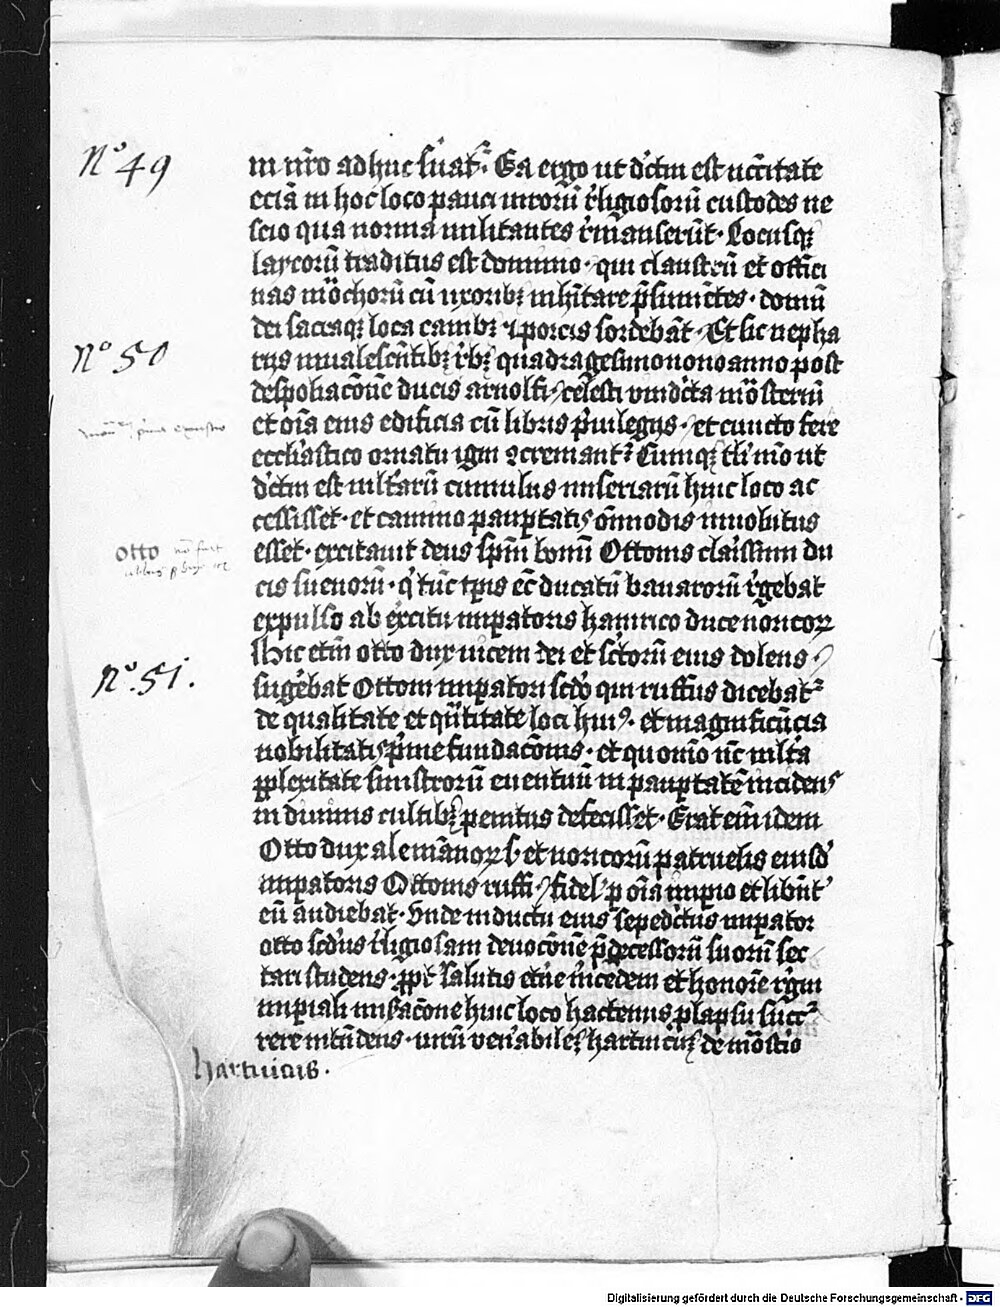 Nº 49
in nr̄o adhuc ſuāt᷑. Ea ergo ut dc̄tm est uc̄citate
eciā in hoc loco pauci inrorū rl̄igiosorū custodes ne
scio qua norma militantes rm̄anserūt. Locusqꝫ
laycorū traditus est dominio. qui claustrū et offici
nas mōchorū cū uxoribꝫ inhītare p̄sumētes. domū
dei sacraqꝫ loca canibꝫ ⁊ porcis sordebāt. Et sic nepha
Nº 50
rijs inualescētibꝫ rebꝫ quadragesimo nono anno post
despoliacōnē ducis arnolfi celesti vindicta mōsteriū
et oīa eius edificia cū libris p̄uilegijs. et cuncto fere
eccl̄iastico ornatu igni ꝯcremant᷑. Cumqꝫ tl̄i mō ut
dc̄tm est mltārū cumulus miseriarū huic loco ac
cessisset. et camino paup̄tatis om̄modis inuolutus
otto
esset. excitauit deus sp̄m bonū Ottonis clar̄issimi du
cis sueuorū. q' tūc tp̄is ec̄ ducatū bauarorū r̄gebat
expulso ab ex̄citu imp̄atoris hainrico duce noricoꝝ
Nº. 51.
Hic etīm otto dux uicem dei et sc̄torū eius dolens
suḡebat Ottoni imp̄atori scd̄o qui ruffus dicebat᷑
de qualitate et qūtitate loci hui᷒. et magnificēcia
nobilitatis p̄me fundacōnis. et quomō nc̄ mlta
ꝑplexitate sinistrorū euentuū in paup̄tatē incidens
in diuinis cultibꝫ penitus defecisset. Erat eīm idem
Otto dux alemānoꝝ s. et noricorū patruelis eiusd'
imp̄atoris Ottonis ruffi fidel' p oīa imp̄io et libēt'
eū audiebat. Unde inductu eius sepedc̄tus imp̄ator
otto scd̄us rl̄igiosam deuocōnē p̄decessorū suorū sec
tari studens. ꝓpt' salutis etn̄e m̄cedem et honorē r̄gni
imp̄iali miẜacōne huic loco hactenus plapsu succ᷑
rere intēdens. uirū ven̄abilēs hartuicūꝫ de mōst̄io
hartuicus.
Digitalisierung gefördert durch die Deutsche Forschungsgemeinschaft - DFG